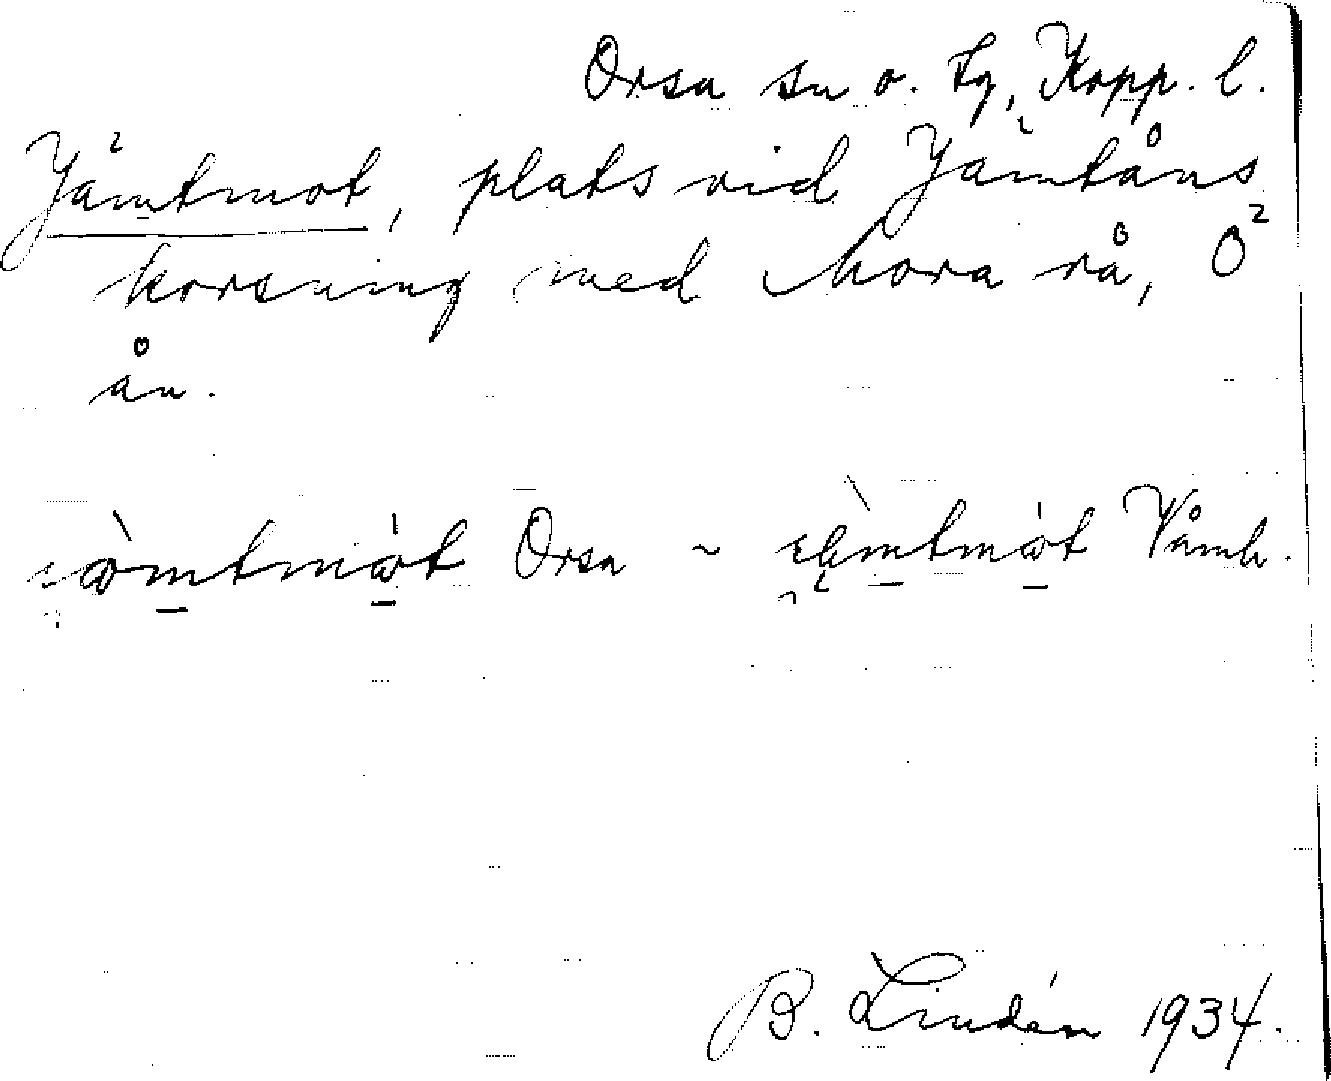 Orsa sn o. tg, Kopp. l.
Jämtmot, plats vid Jämtåns
korsning med Mora rå, Ö²
ån.
Orsa ~ Våmh.
B. Lindén 1934.